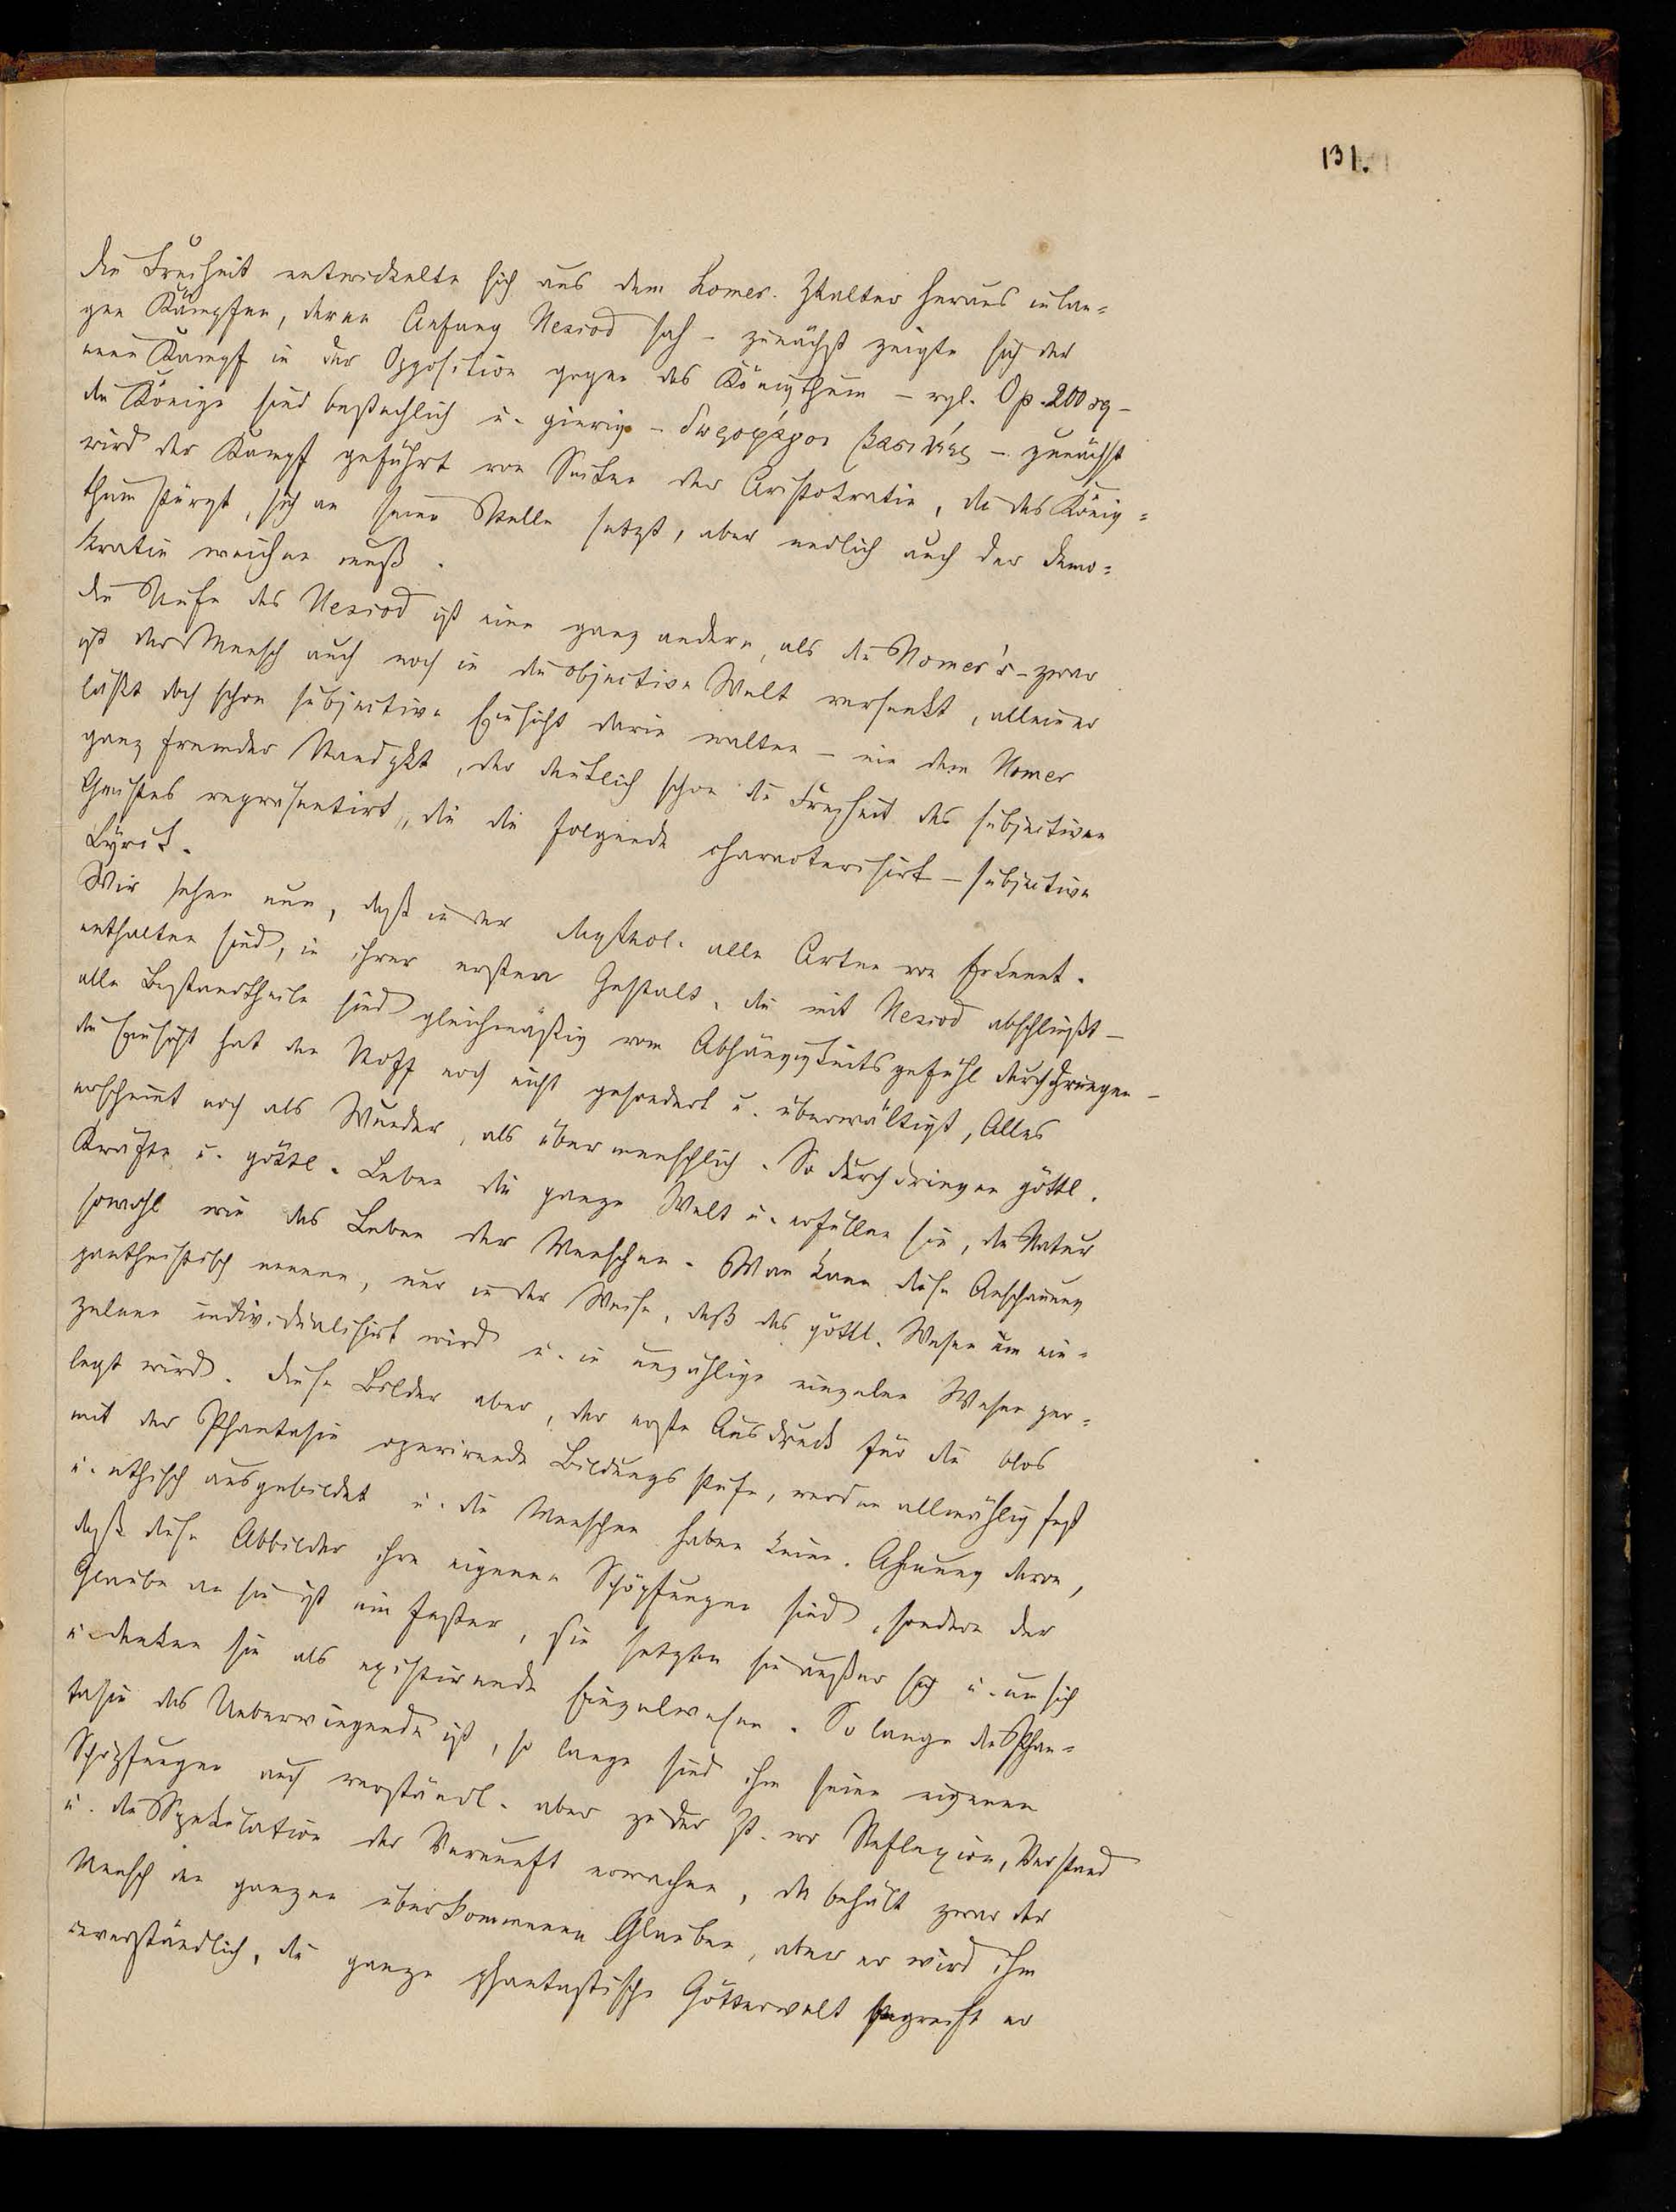 131.
die Freiheit entwickelte sich aus dem homer. Ztalter heraus in lan=
gen Kämpfen, deren Anfang Hesiod sah – zunächst zeigte sich der
neue Kampf in der Opposition gegen das Königthum – vgl. Op. 200 sq –
die Könige sind bestechlich u. gierig – δωροφάγοι βασιλῆες – zunächst
wird der Kampf geführt von Seiten der Aristokratie, die das König=
thum stürzt, sich an seine Stelle setzt, aber endlich auch der Demo=
kratie weichen muß.
Die Stufe des Hesiod ist eine ganz andere, als die Homer's – zwar
ist der Mensch auch noch in die objective Welt versenkt, allein er
läßt doch schon subjective Einsicht darin walten – ein dem Homer
ganz fremder Standpkt, der deutlich schon die Freiheit des subjectiven
Geistes repräsentirt, die die folgende charakterisirt – subjective
Lyrik.
Wir sehen nun, daß in der Mythol. alle Arten von Erkennt.
enthalten sind, in ihrer ersten Gestalt, die mit Hesiod abschließt –
alle Bestandtheile sind gleichmäßig vom Abhängigkeitsgefühl durchdrungen –
die Einsicht hat den Stoff noch nicht gesondert u. überwältigt, Alles
erscheint noch als Wunder, als übermenschlich. So durchdringen göttl.
Kräfte u. göttl. Leben die ganze Welt u. erfüllen sie, die Natur
sowohl wie das Leben der Menschen. Man kann diese Anschauung
pantheistisch nennen, nur in der Weise, daß das göttl. Wesen im ein=
zelnen individualisirt wird u. in unzählige einzelne Wesen zer=
legt wird. Diese Bilder aber, der erste Ausdruck für die blos
mit der Phantasie operirende Bildungsstufe, werden allmählig fest
u. ethisch ausgebildet u. die Menschen haben keine Ahnung davon,
daß diese Abbilder ihre eigenen Schöpfungen sind, sondern der
Glaube an sie ist ein fester, sie setzten sie außer sich u. an sich
u. denken sie als existirende Einzelwesen. So lange die Phan=
tasie das Ueberwiegende ist, so lange sind ihm seine eigenen
Schöpfungen auch verständl. aber zu der Zt. wo Reflexion, Verstand
u. die Spekulation der Vernunft erwachen, da behält zwar der
Mensch den ganzen überkommenen Glauben, aber er wird ihm
unverständlich, die ganze phantastische Götterwelt begreift er